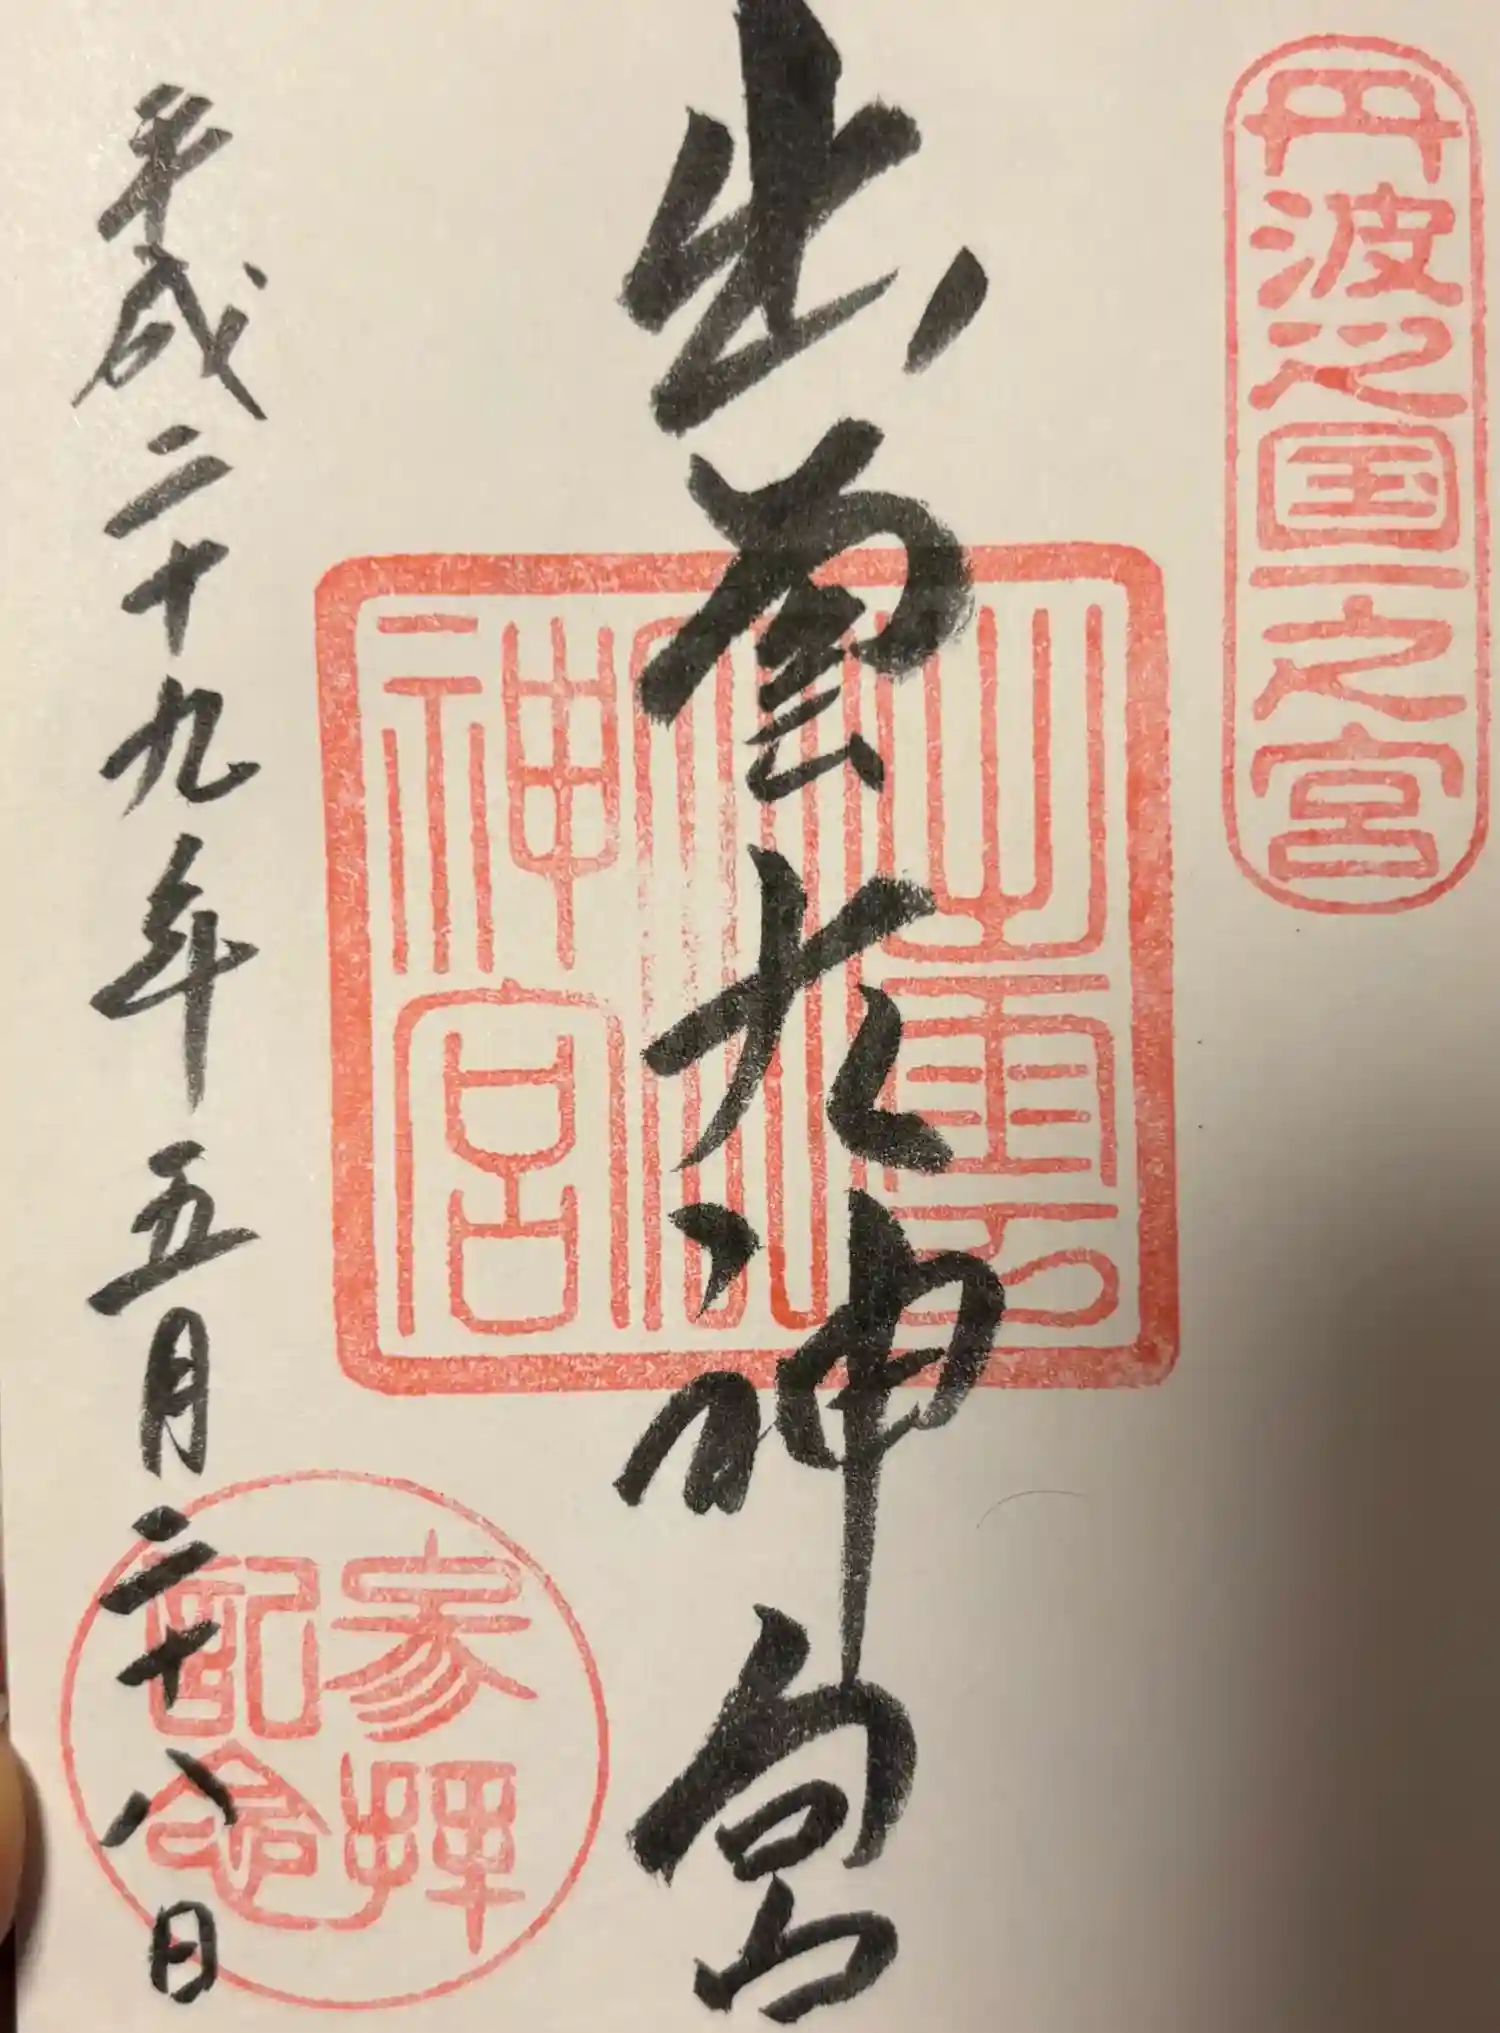 丹波之国一之宮
出雲大神宮
出雲大神宮
平成二十九年五月二十八日
参拝記念